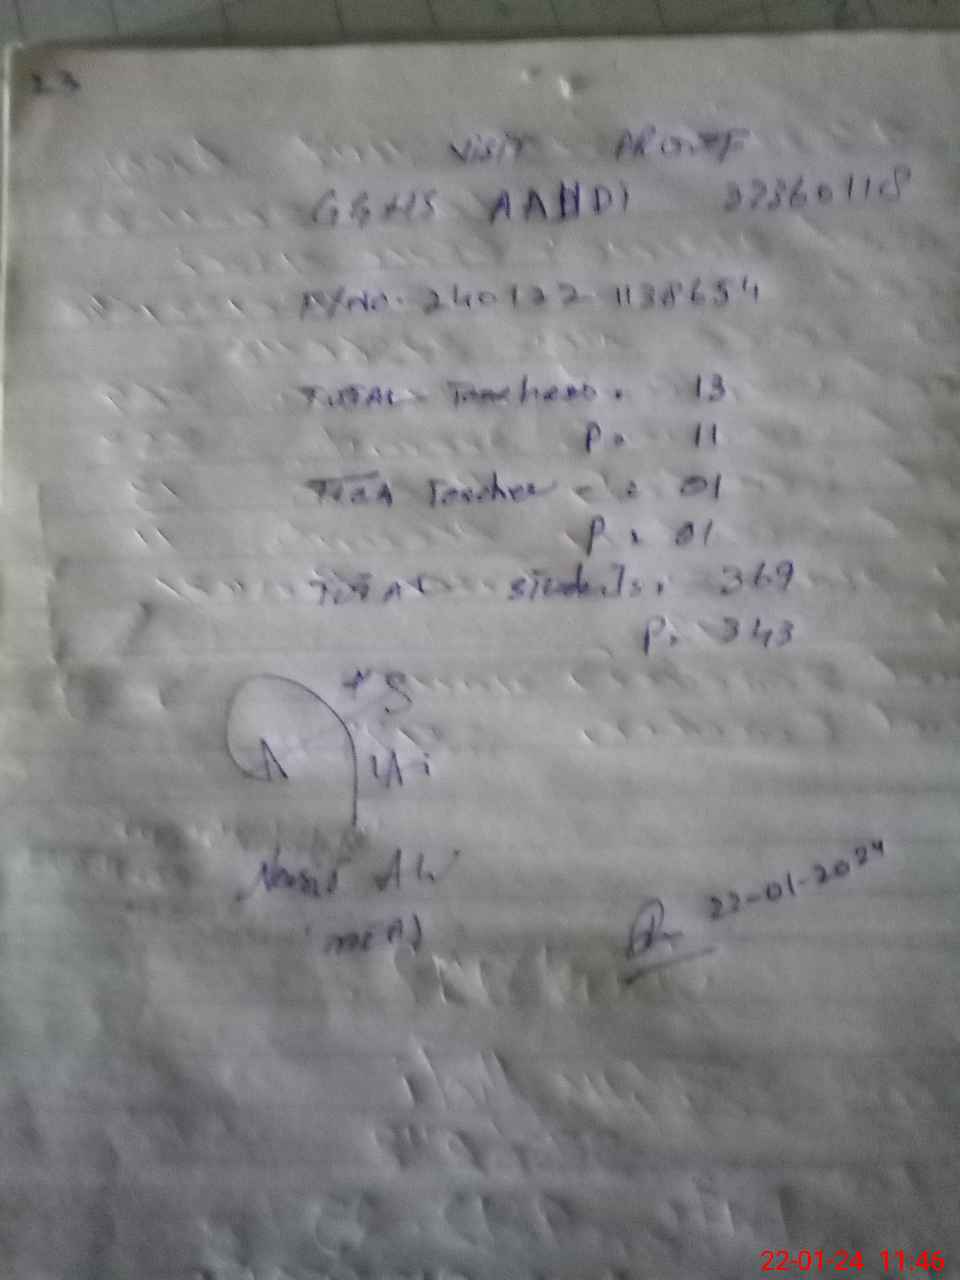 23
VISIT PROOF
GGHS AANDI 37360118
R/No. 240122-1138654
TOTAL Teachers. 13
P. 11
Teacher - : 01
P : 01
TOTAL Students. 369
P. 343
Ali
(MEA)
22-01-2024
22-01-24 11:46